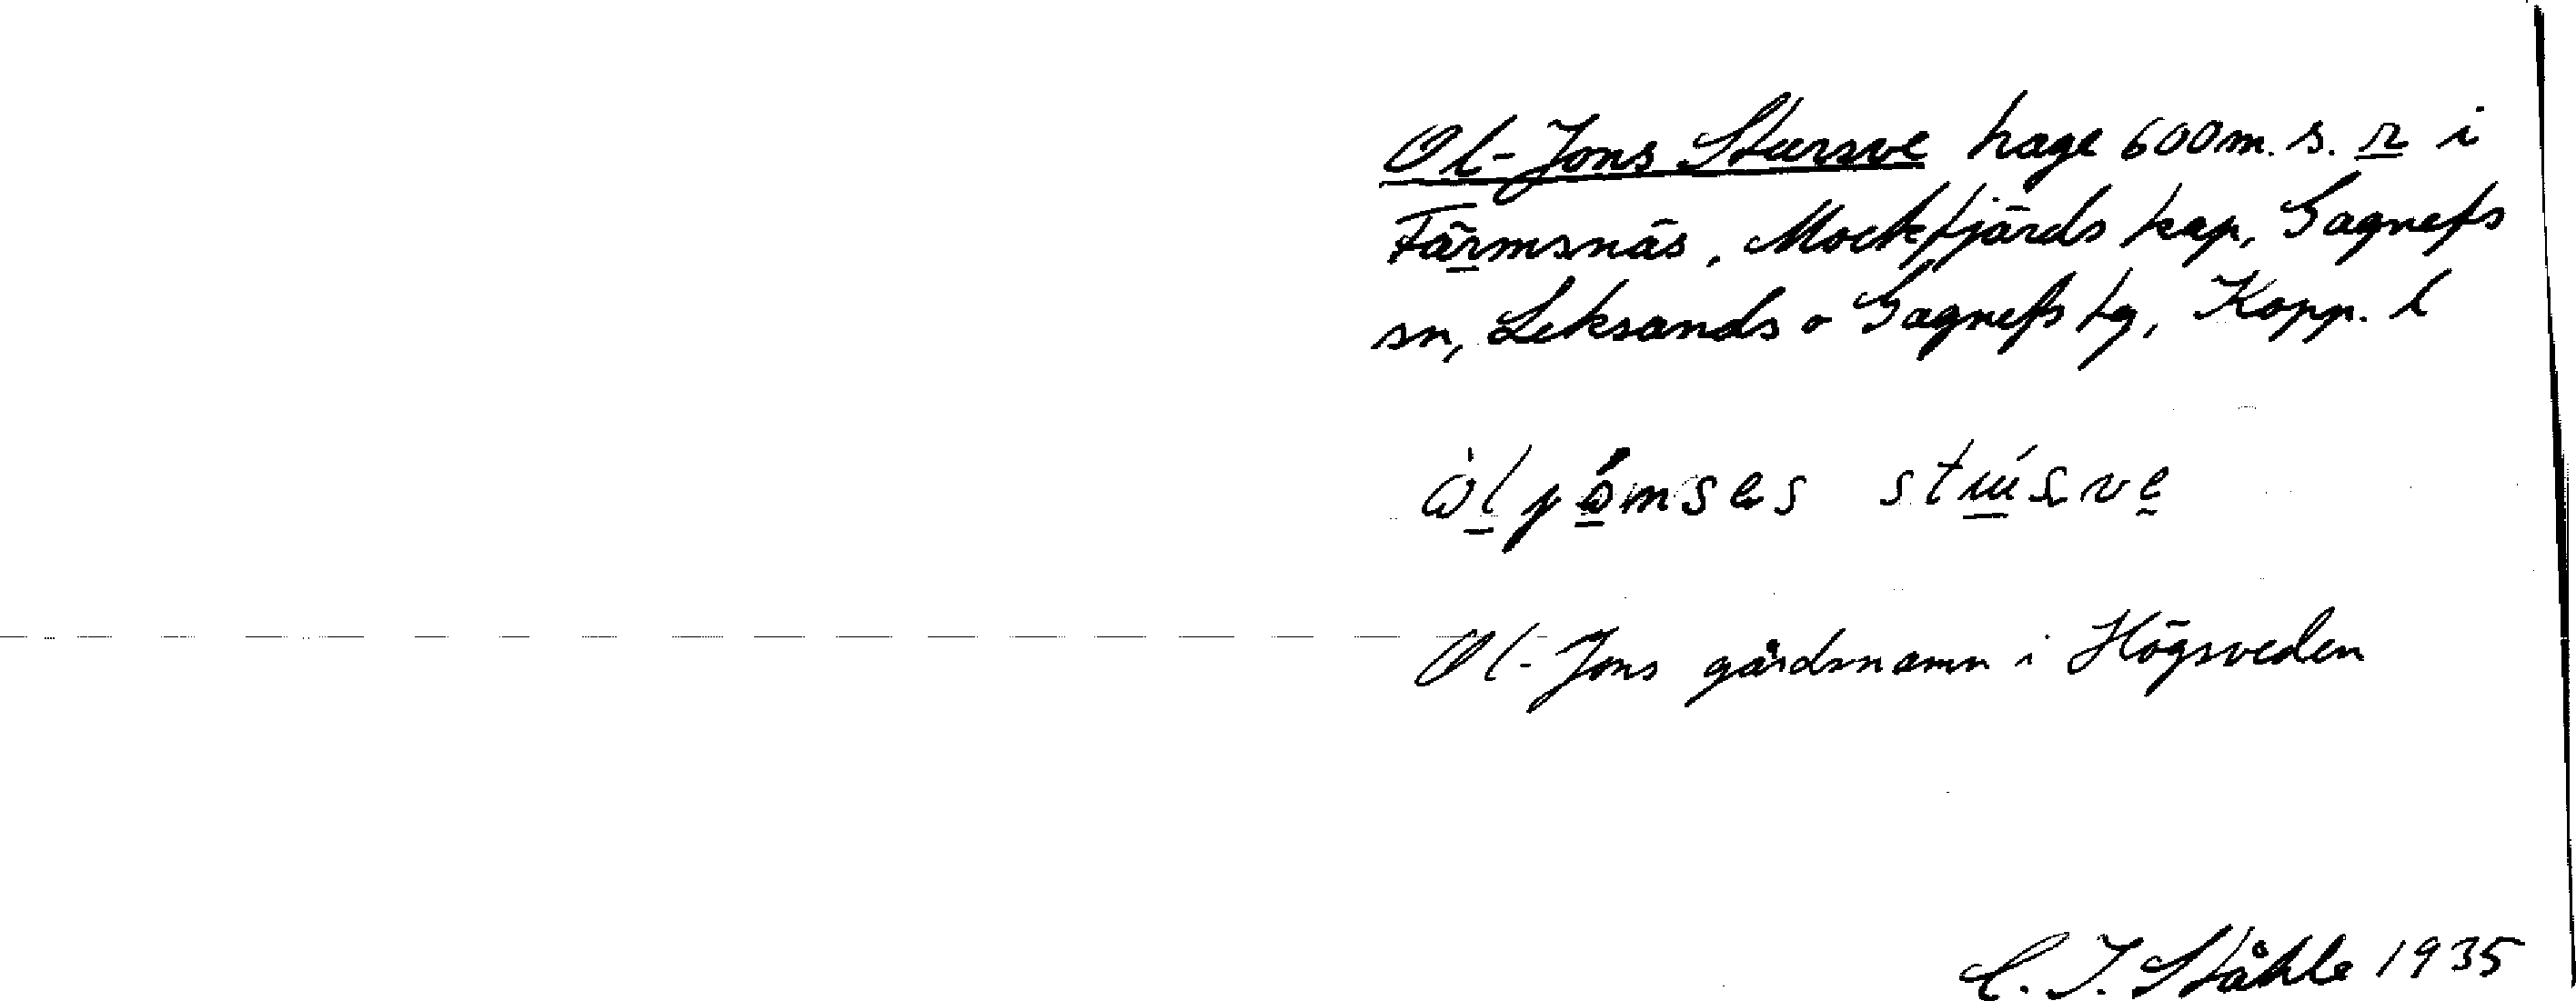 Ol-Jons Stursve hage 600 m. s. r i
Färmsnäs, Mockfjärds kap, Gagnefs
sn, Leksands o Gagnefs tg, Kopp. l
Ol-Jons gårdsnamn i Högsveden
C. I. Ståhle 1935